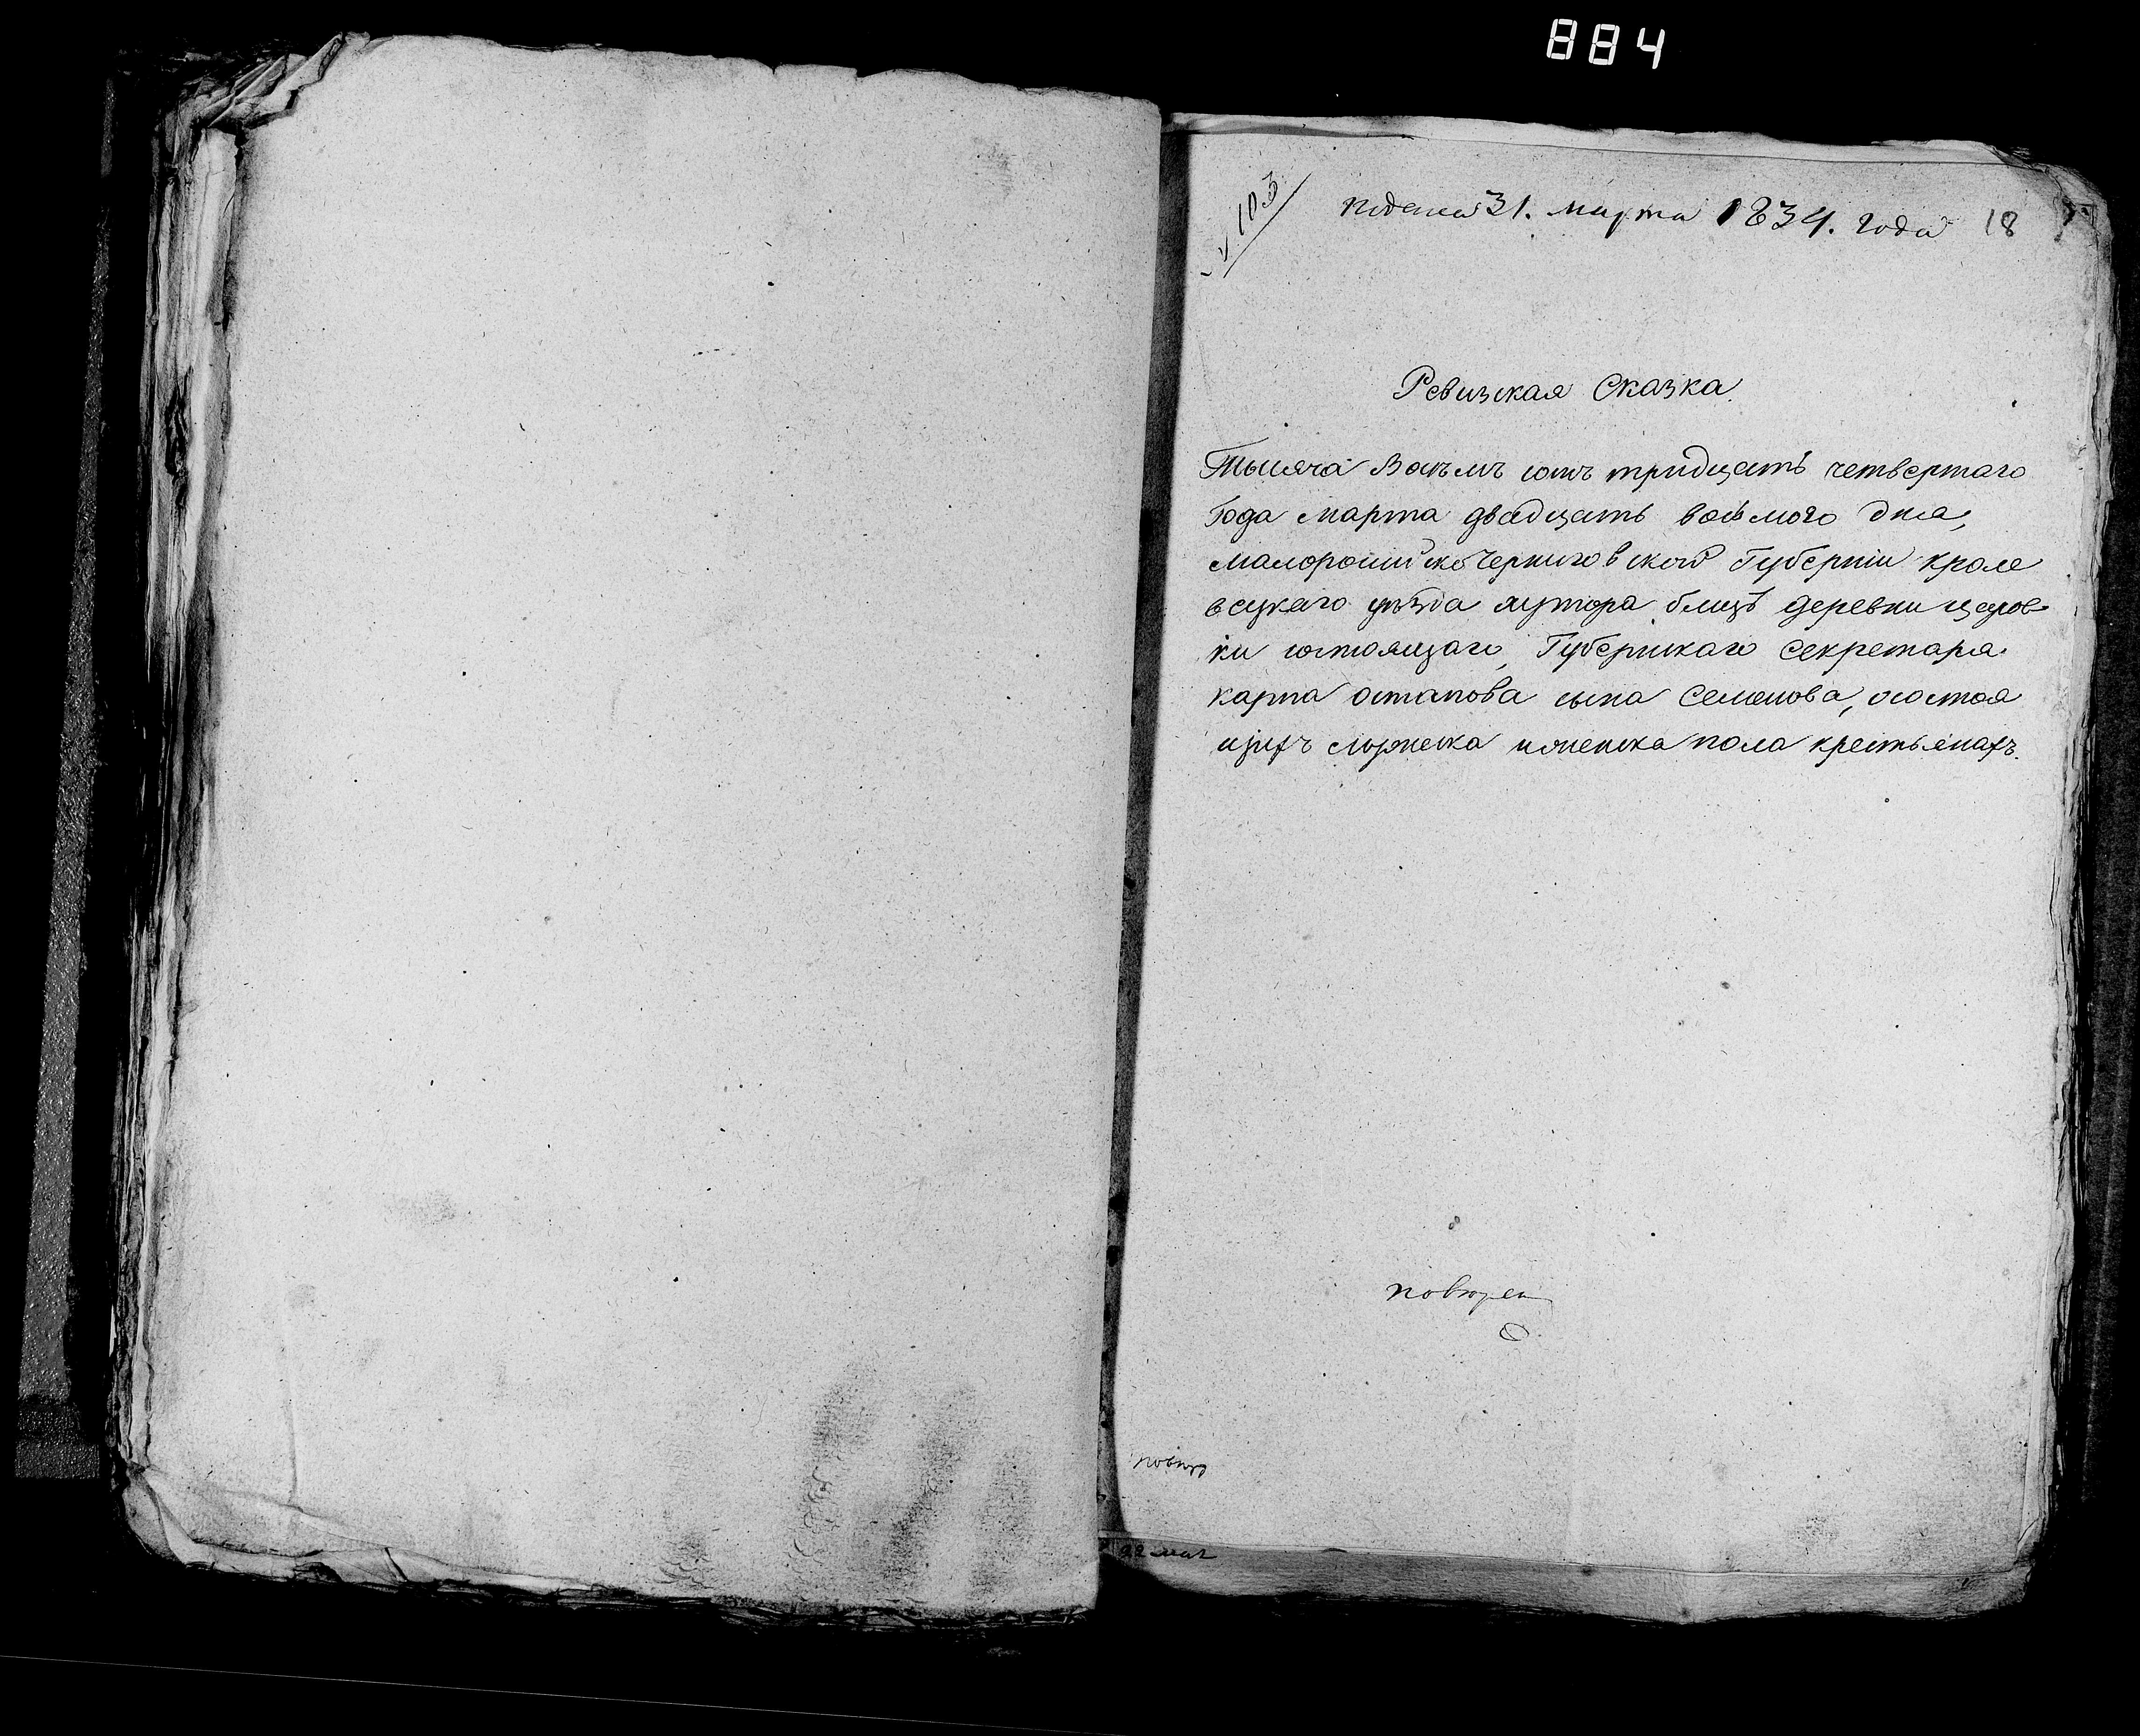 884
№ 103
подана 31. марта 1834. года 18
Ревизская Сказка
Тысяча Восемъ сотъ тридцать четвертаго
Года марта двадцать восьмого дня,
малоросійской Черниговской Губерніи кроле
вецкаго уѣзда хутора близъ деревни
ки состоящаго, Губернскаго Секретаря
карпа остапова сына Семенова, о состоя
щихъ мужеска и женска пола крестьянахъ.